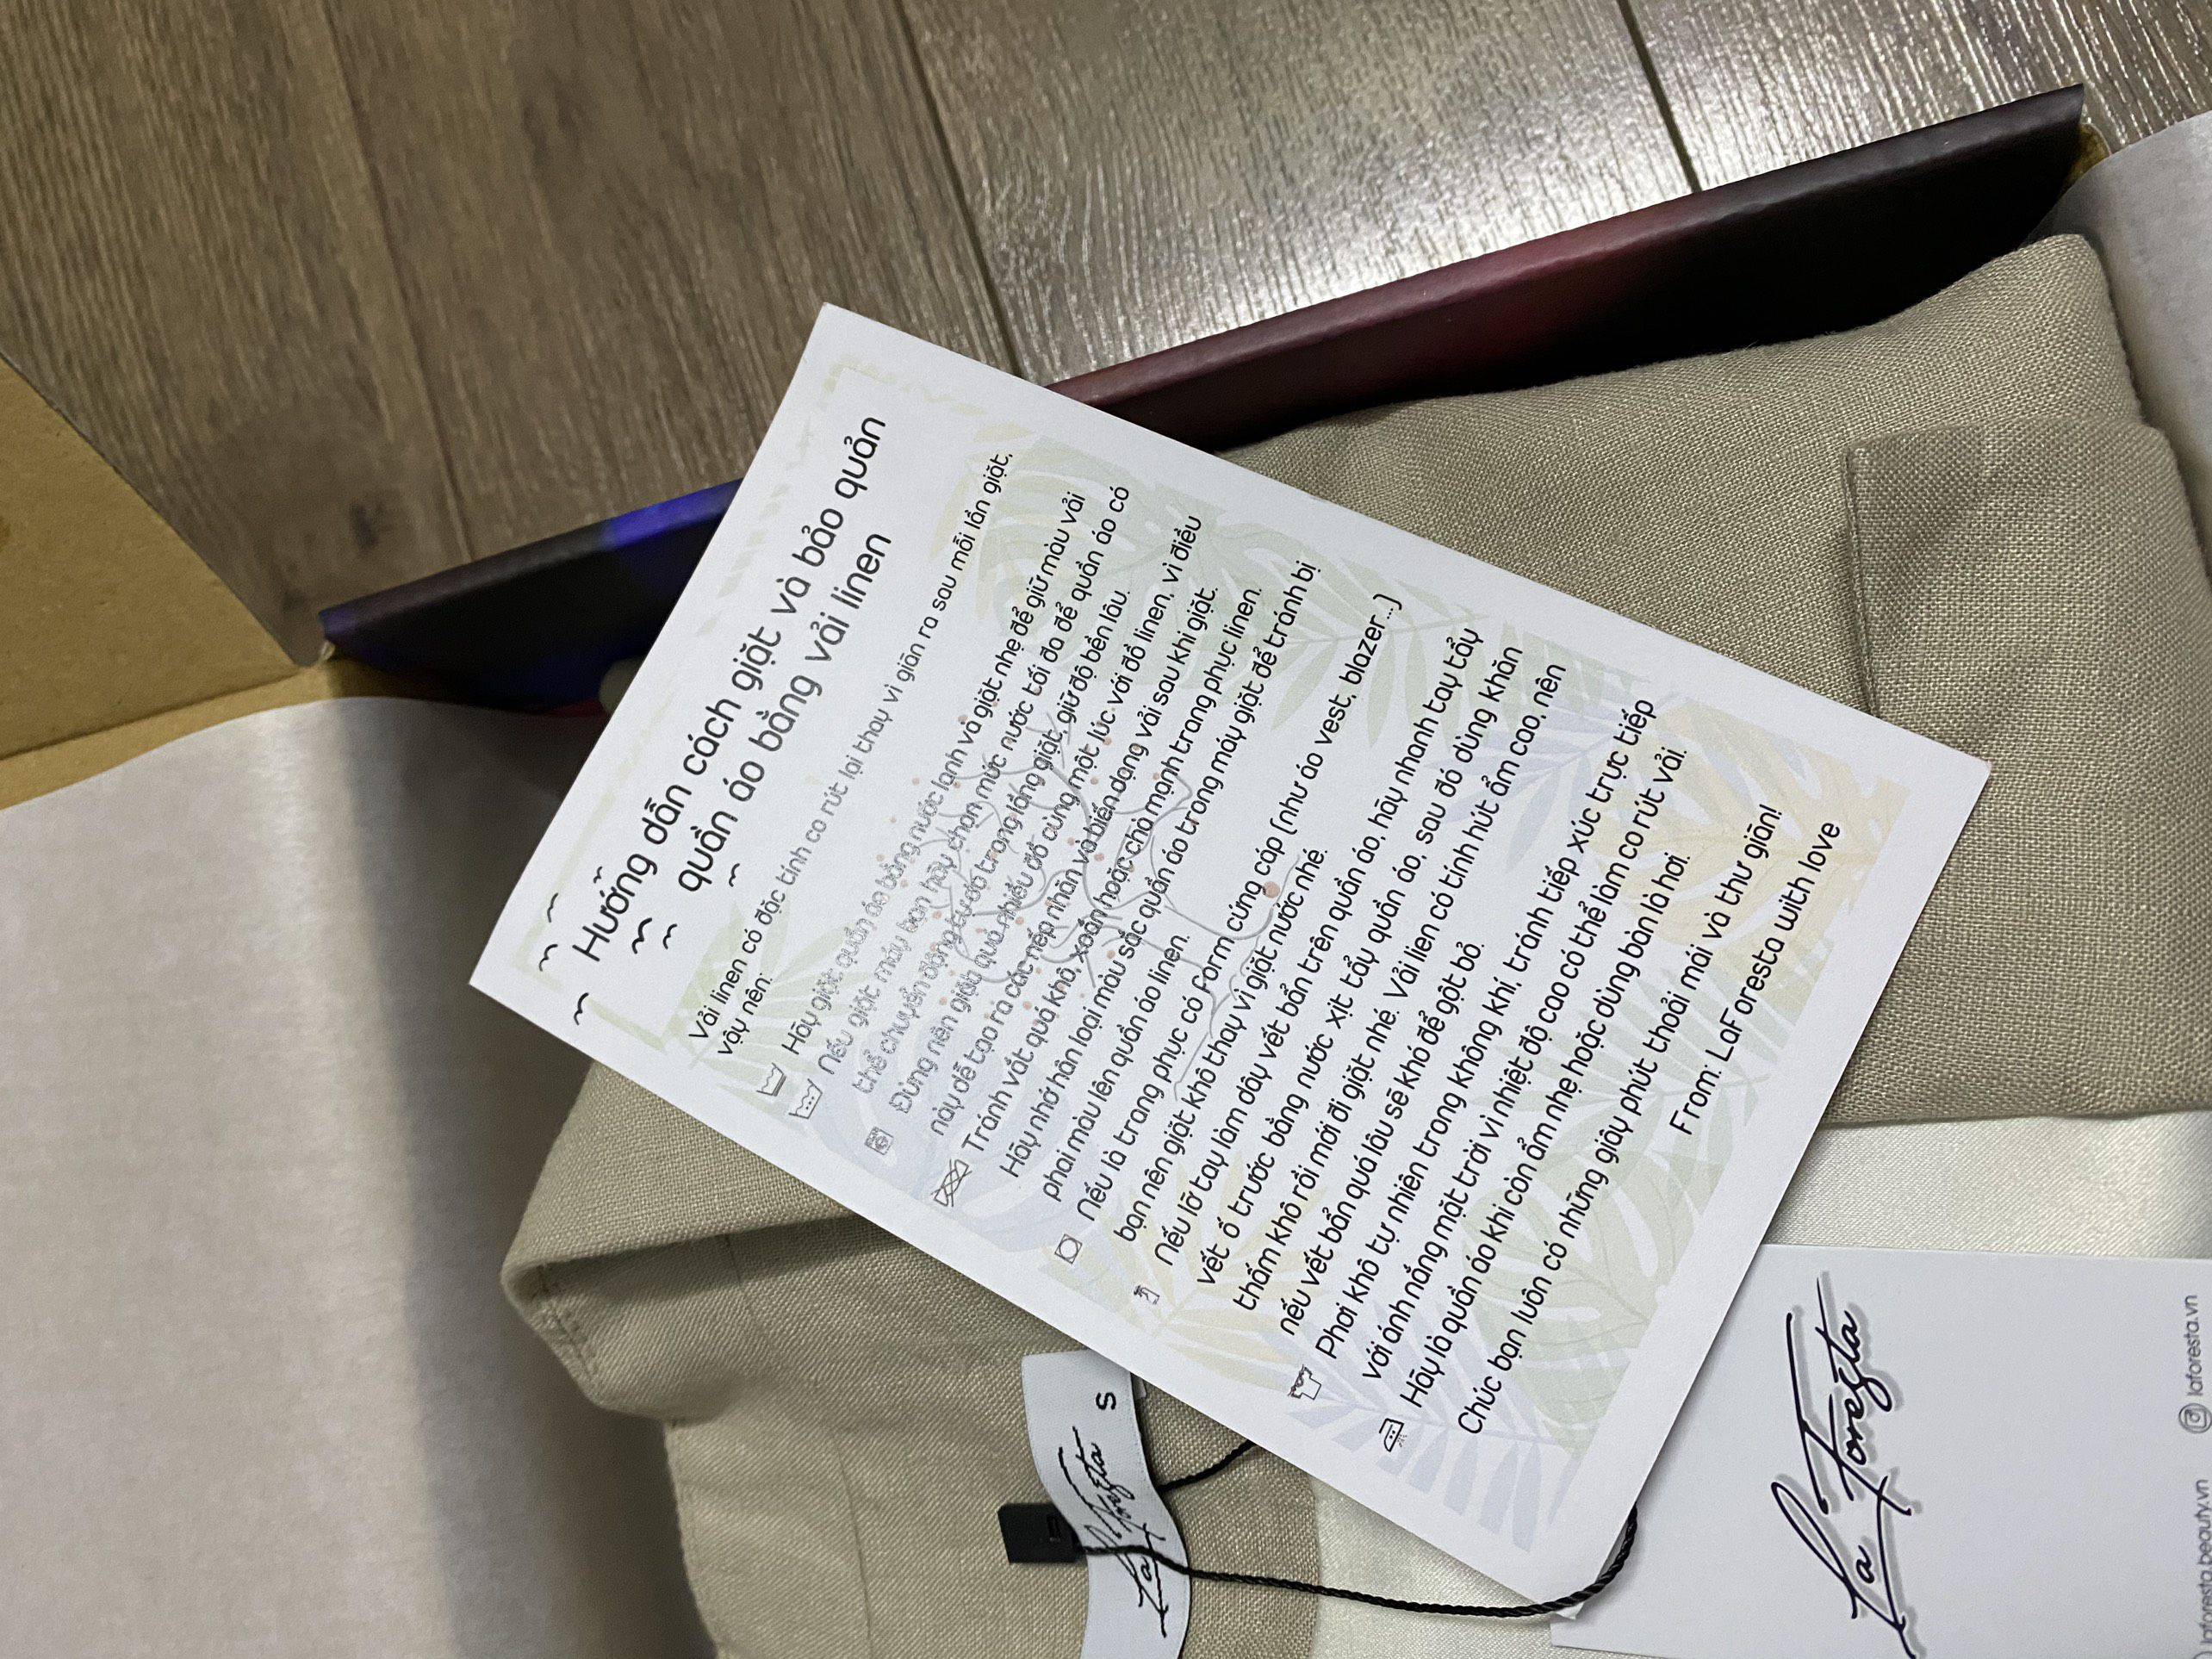 Hướng dẫn cách giặt và bảo quản
quần áo bằng vải linen
Vải linen có đặc tính co rút lại thay vì giãn ra sau mỗi lần giặt,
vậy nên:
Hãy giặt quần áo bằng nước lạnh và giặt nhẹ để giữ màu vải
Nếu giặt máy bạn hãy chọn mức nước tối đa để quần áo có
thể chuyển động tự do trong lồng giặt, giữ độ bền lâu.
Đừng nên giặt quá nhiều đồ cùng một lúc với đồ linen, vì điều
này dễ tạo ra các nếp nhăn và biến dạng vải sau khi giặt.
Tránh vắt quá khô, xoắn hoặc chà mạnh trang phục linen.
Hãy nhớ hân loại màu sắc quần áo trong máy giặt để tránh bị
phai màu lên quần áo linen.
Nếu là trang phục có form cứng cáp (như áo vest, blazer...)
bạn nên giặt khô thay vì giặt nước nhé.
Nếu lỡ tay làm dây vết bẩn trên quần áo, hãy nhanh tay tẩy
vết ố trước bằng nước xịt tẩy quần áo, sau đó dùng khăn
thấm khô rồi mới đi giặt nhé. Vải lien có tính hút ẩm cao, nên
nếu vết bẩn quá lâu sẽ khó để gột bỏ.
Phơi khô tự nhiên trong không khí, tránh tiếp xúc trực tiếp
với ánh nắng mặt trời vì nhiệt độ cao có thể làm co rút vải.
Hãy là quần áo khi còn ẩm nhẹ hoặc dùng bàn là hơi.
Chúc bạn luôn có những giây phút thoải mái và thư giãn!
From: LaForesta with love
La Foresta
S
La Foresta
laforesta.beauty.vn
laforesta.vn